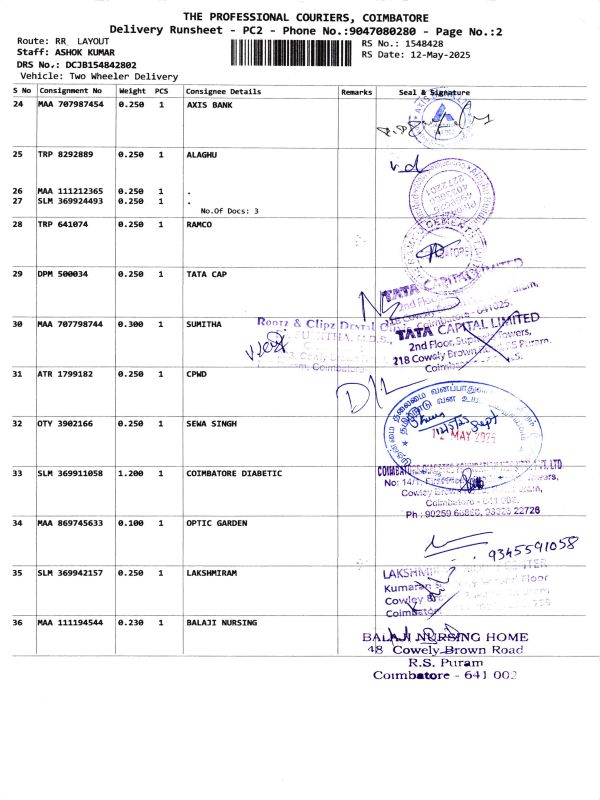 THE PROFESSIONAL COURIERS, COIMBATORE
Delivery Runsheet - PC2 - Phone No.:9047080280 - Page No.:2
Route: RR LAYOUT
RS No.: 1548428
Staff: ASHOK KUMAR
RS Date: 12-May-2025
DRS No.: DCJB154842802
Vehicle: Two Wheeler Delivery
S No Consignment No Weight PCS Consignee Details Remarks Seal & Signature
24 MAA 707987454 0.250 1 AXIS BANK
25 TRP 8292889 0.250 1 ALAGHU
26 MAA 111212365 0.250 1 .
27 SLM 369924493 0.250 1 .
No.Of Docs: 3
28 TRP 641074 0.250 1 RAMCO
29 DPM 500034 0.250 1 TATA CAP
TATA CAPITAL LIMITED
30 MAA 707798744 0.300 1 SUMITHA
Rootz & Clipz Dental
TATA CAPITAL LIMITED
2nd Floor,
218 Cowely Brown
31 ATR 1799182 0.250 1 CPWD
D/L
32 OTY 3902166 0.250 1 SEWA SINGH
12/5/25
12 MAY 2025
33 SLM 369911058 1.200 1 COIMBATORE DIABETIC
34 MAA 869745633 0.100 1 OPTIC GARDEN
9345591058
35 SLM 369942157 0.250 1 LAKSHMIRAM
36 MAA 111194544 0.230 1 BALAJI NURSING
BALAJI NURSING HOME
48 Cowely Brown Road
R.S. Puram
Coimbatore - 641 002